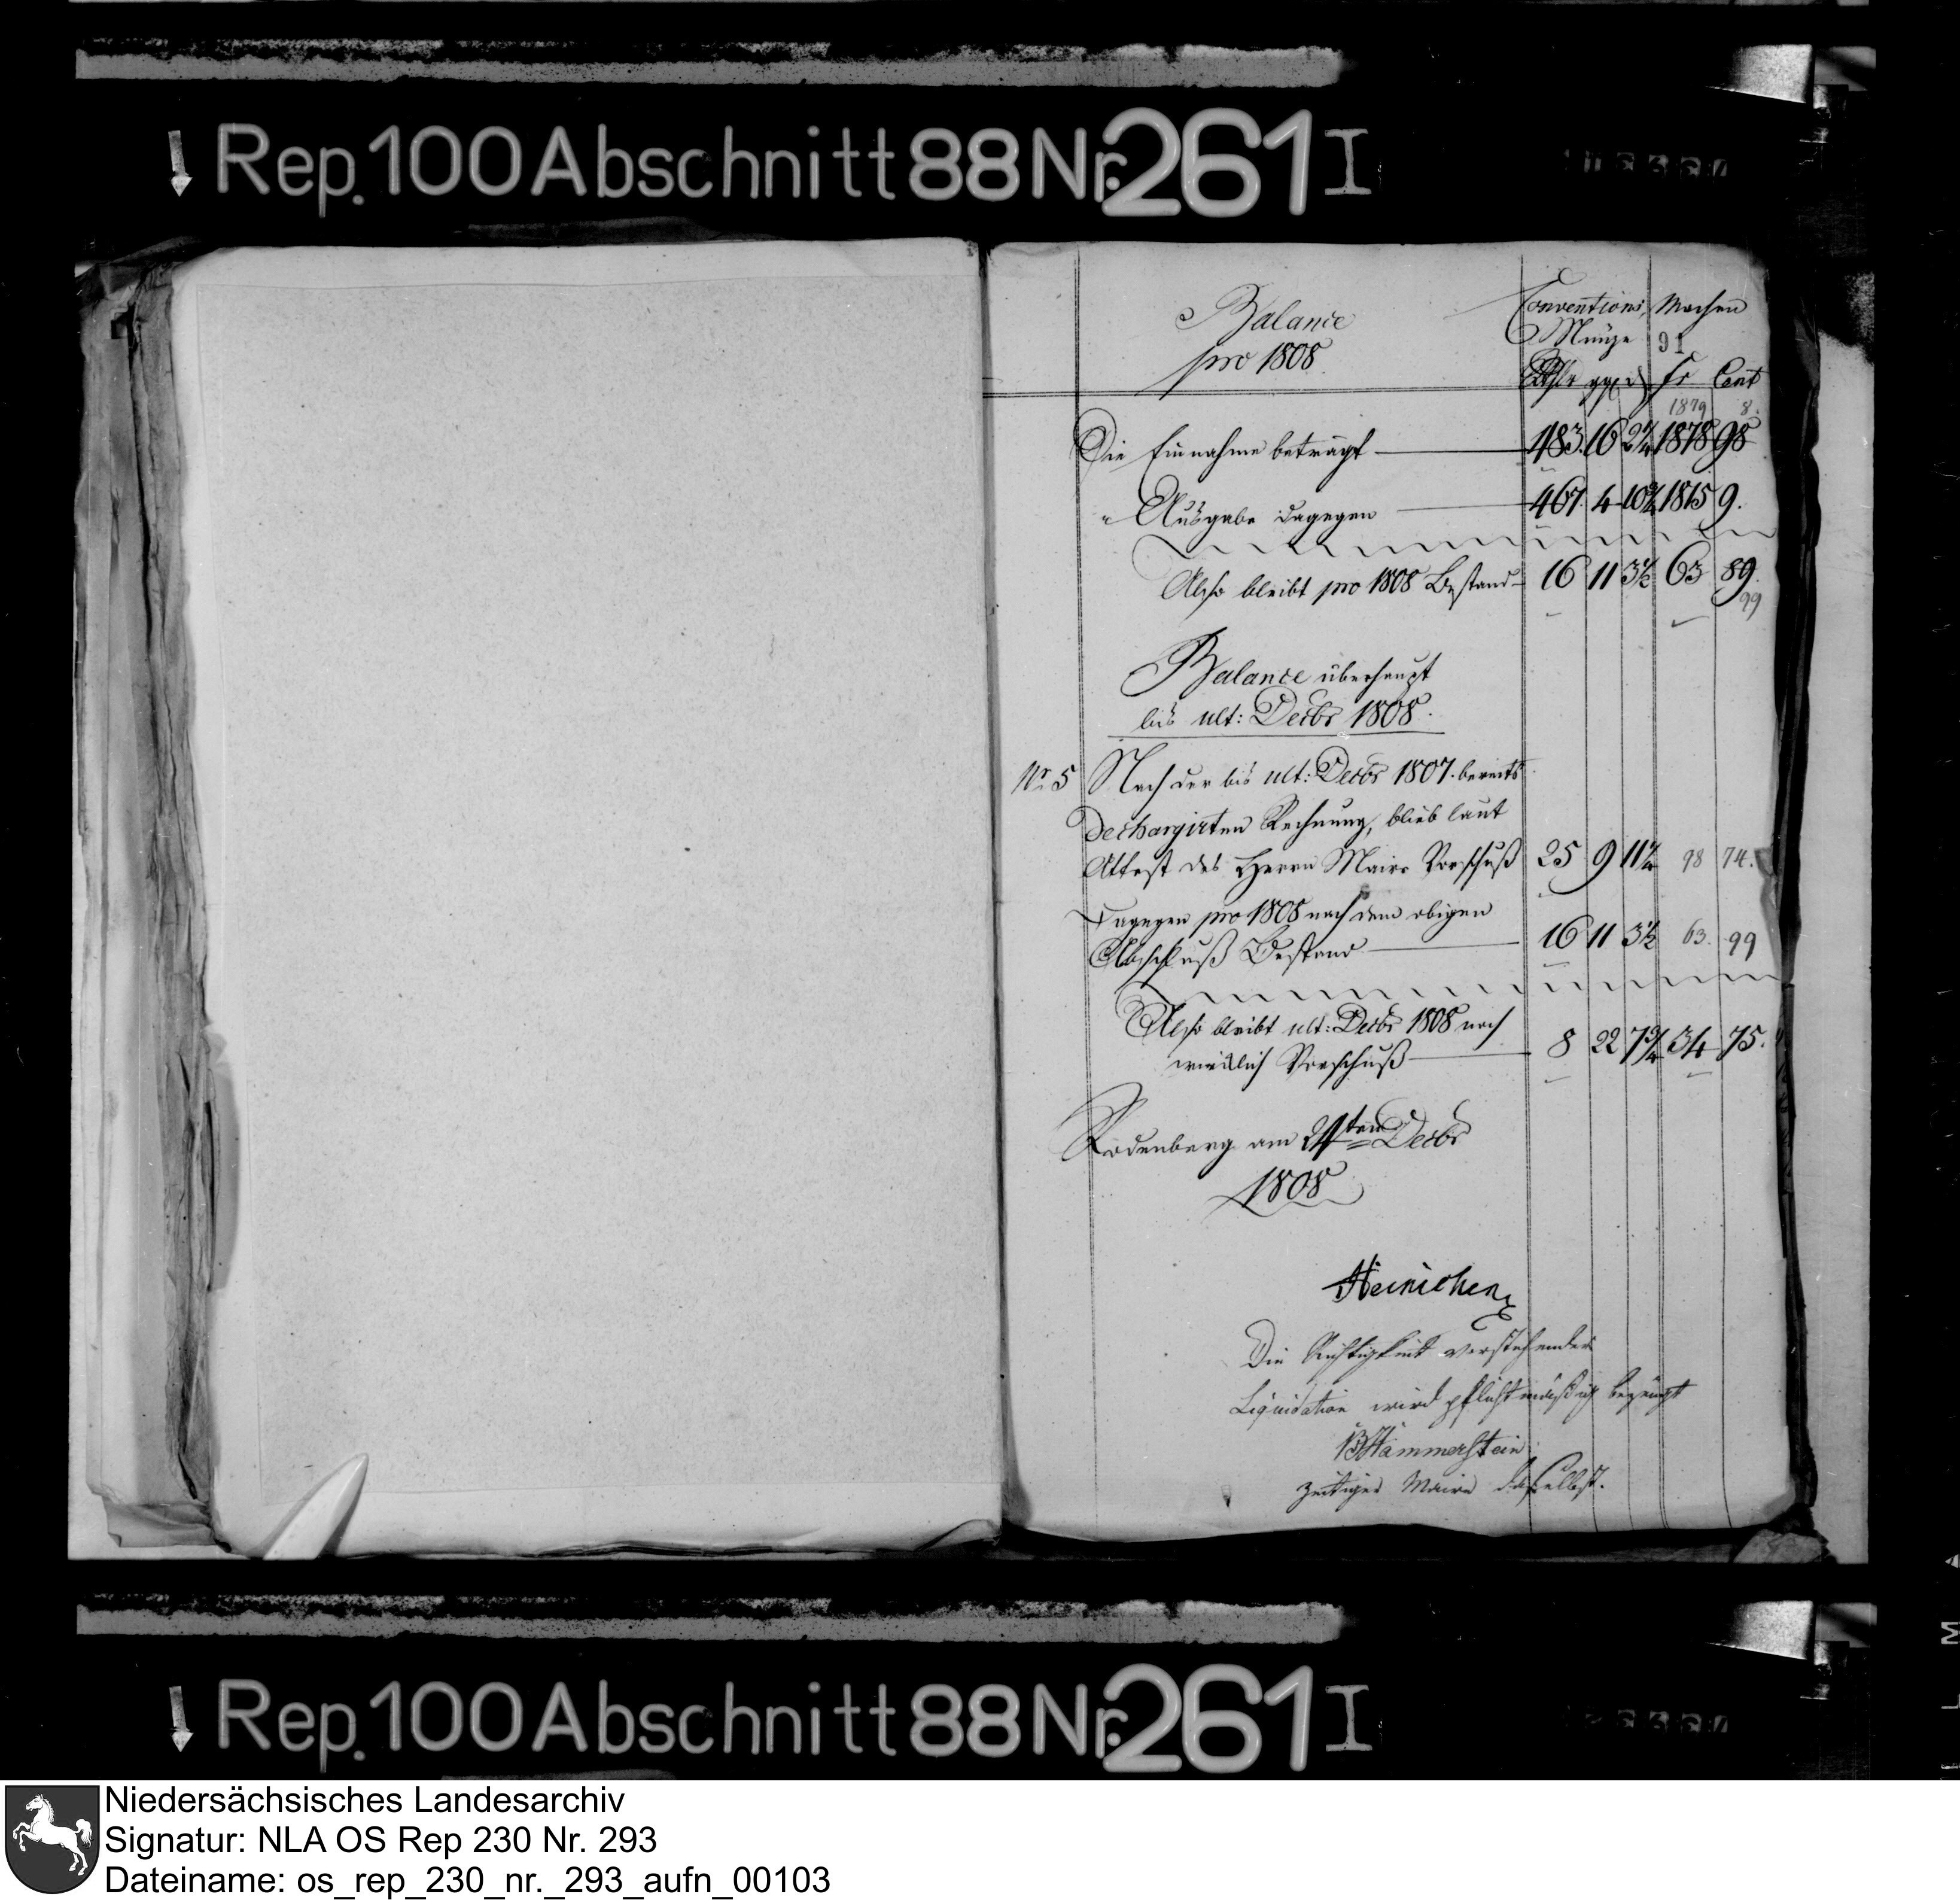 Rep. 100 Abschnitt 88 Nr. 261 I
Balance
pro 1808
Conventions Machen
Münze 91
Rthlr ggl d Fr Cent
1879 8.
Die Einnahme beträgt 483. 16 2 1/4 1878 98
" Ausgabe dagegen 467. 4 10 3/4 1815 9.
Also bleibt pro 1808 Bestand 16 11 3 1/2 63 89.
99
Balance überhaupt
bis ult: Decbr 1808.
Nr. 5 Nach der bis ult: Decbr 1807. bereits
dechargirten Rechnung, blieb laut
Attest des Herrn Maire Vorschuß 25 9 11 1/4 98 74.
Dagegen pro 1808 nach dem obigen
Abschluß Bestand 16 11 3 1/2 63. 99
Also bleibt ult: Decbr 1808 noch
würcklich Vorschuß 8 22 7 3/4 34 75.
Rodenberg am 24ten Decbr
1808
Heinichen
Die Richtigkeit vorstehender
Liquidation wird pflichtmäßig bezeugt
Hammerstein
zeitiger Maire daselbst.
Rep. 100 Abschnitt 88 Nr. 261 I
Niedersächsisches Landesarchiv
Signatur: NLA OS Rep 230 Nr. 293
Dateiname: os_rep_230_nr._293_aufn_00103